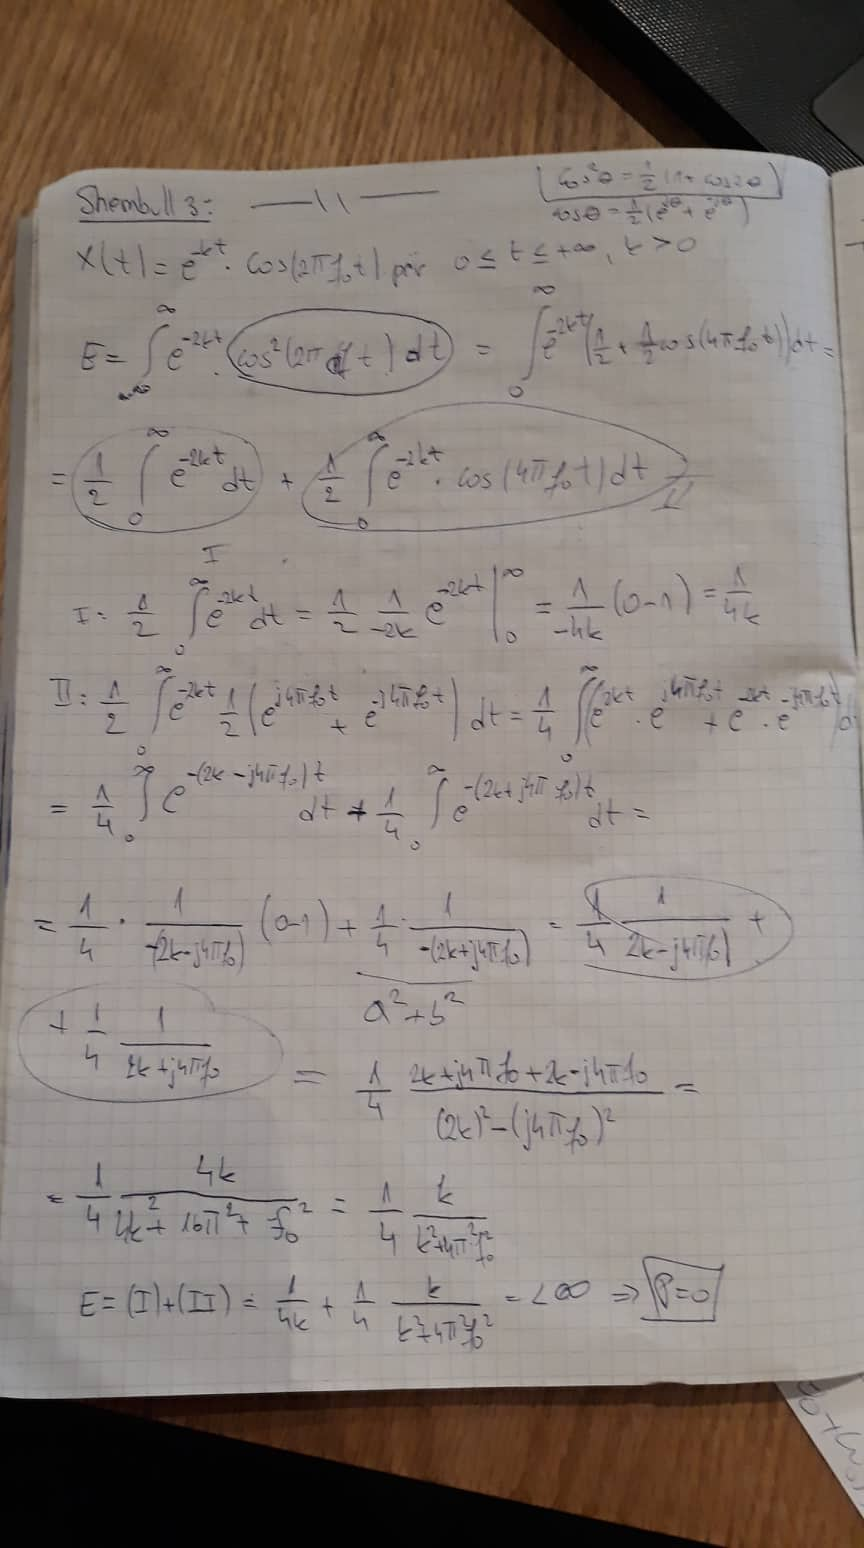 Shembull 3: — \\ —
cos²θ = 1/2 (1 + cos2θ)
cosθ = 1/2 (e^jθ + e^-jθ)
x(t) = e^-kt · cos(2πf₀t) për 0 ≤ t ≤ +∞, k > 0
E = ∫_-∞^∞ e^-2kt · cos²(2πft) dt = ∫_0^∞ e^-2kt (1/2 + 1/2 cos(4πf₀t)) dt =
= 1/2 ∫_0^∞ e^-2kt dt + 1/2 ∫_0^∞ e^-2kt · cos(4πf₀t) dt
I II
I: 1/2 ∫_0^∞ e^-2kt dt = 1/2 1/-2k e^-2kt |_0^∞ = 1/-4k (0-1) = 1/4k
II: 1/2 ∫_0^∞ e^-2kt 1/2 (e^j4πf₀t + e^-j4πf₀t) dt = 1/4 ∫_0^∞ (e^-2kt · e^j4πf₀t + e^-2kt · e^-j4πf₀t) d
= 1/4 ∫_0^∞ e^-(2k-j4πf₀)t dt + 1/4 ∫_0^∞ e^-(2k+j4πf₀)t dt =
= 1/4 · 1/-(2k-j4πf₀) (0-1) + 1/4 · 1/-(2k+j4πf₀) = 1/4 1/(2k-j4πf₀) +
a² + b²
+ 1/4 1/2k+j4πf₀ = 1/4 2k+j4πf₀+2k-j4πf₀/(2k)²-(j4πf₀)² =
= 1/4 4k/4k²+16π²+f₀² = 1/4 k/k²+4π²f₀²
E = (I)+(II) = 1/4k + 1/4 k/k²+4π²f₀² = < ∞ ⇒ P=0